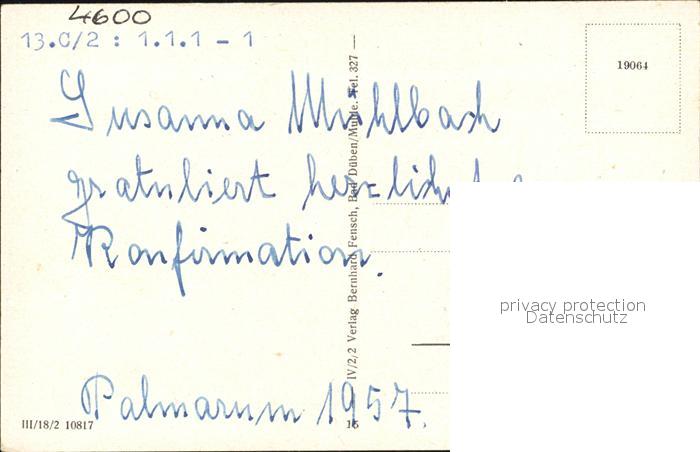 4600
13.C/2 : 1.1.1 - 1
19064
Susanna Mühlbach
gratuliert herzlich
Konfirmation.
Palmarum 1957.
IV/2/2 Verlag Bernhard Fensch, Bad Düben/Mulde. Tel. 327 —
III/18/2 10817
15
privacy protection
Datenschutz